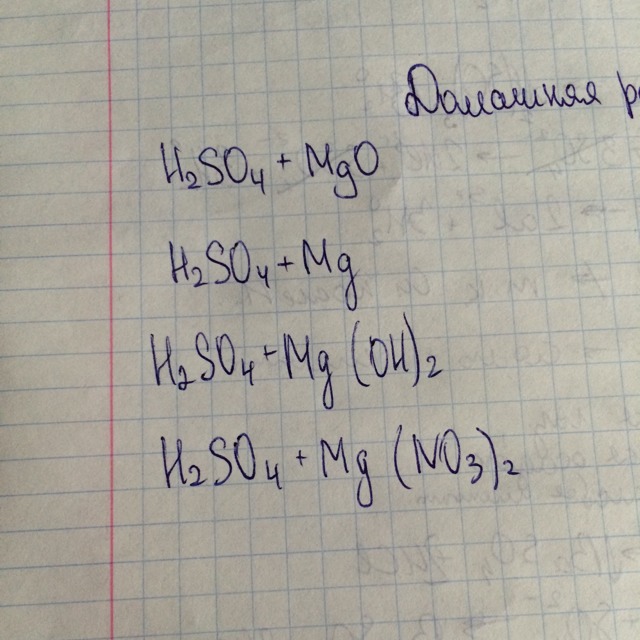 Домашняя
H₂SO₄ + MgO
H₂SO₄ + Mg
H₂SO₄ + Mg (OH)₂
H₂SO₄ + Mg (NO₃)₂